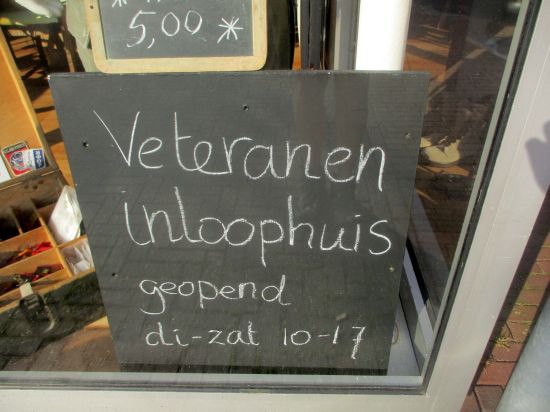 5,00 *
Veteranen
inloophuis
geopend
di-zat 10-17